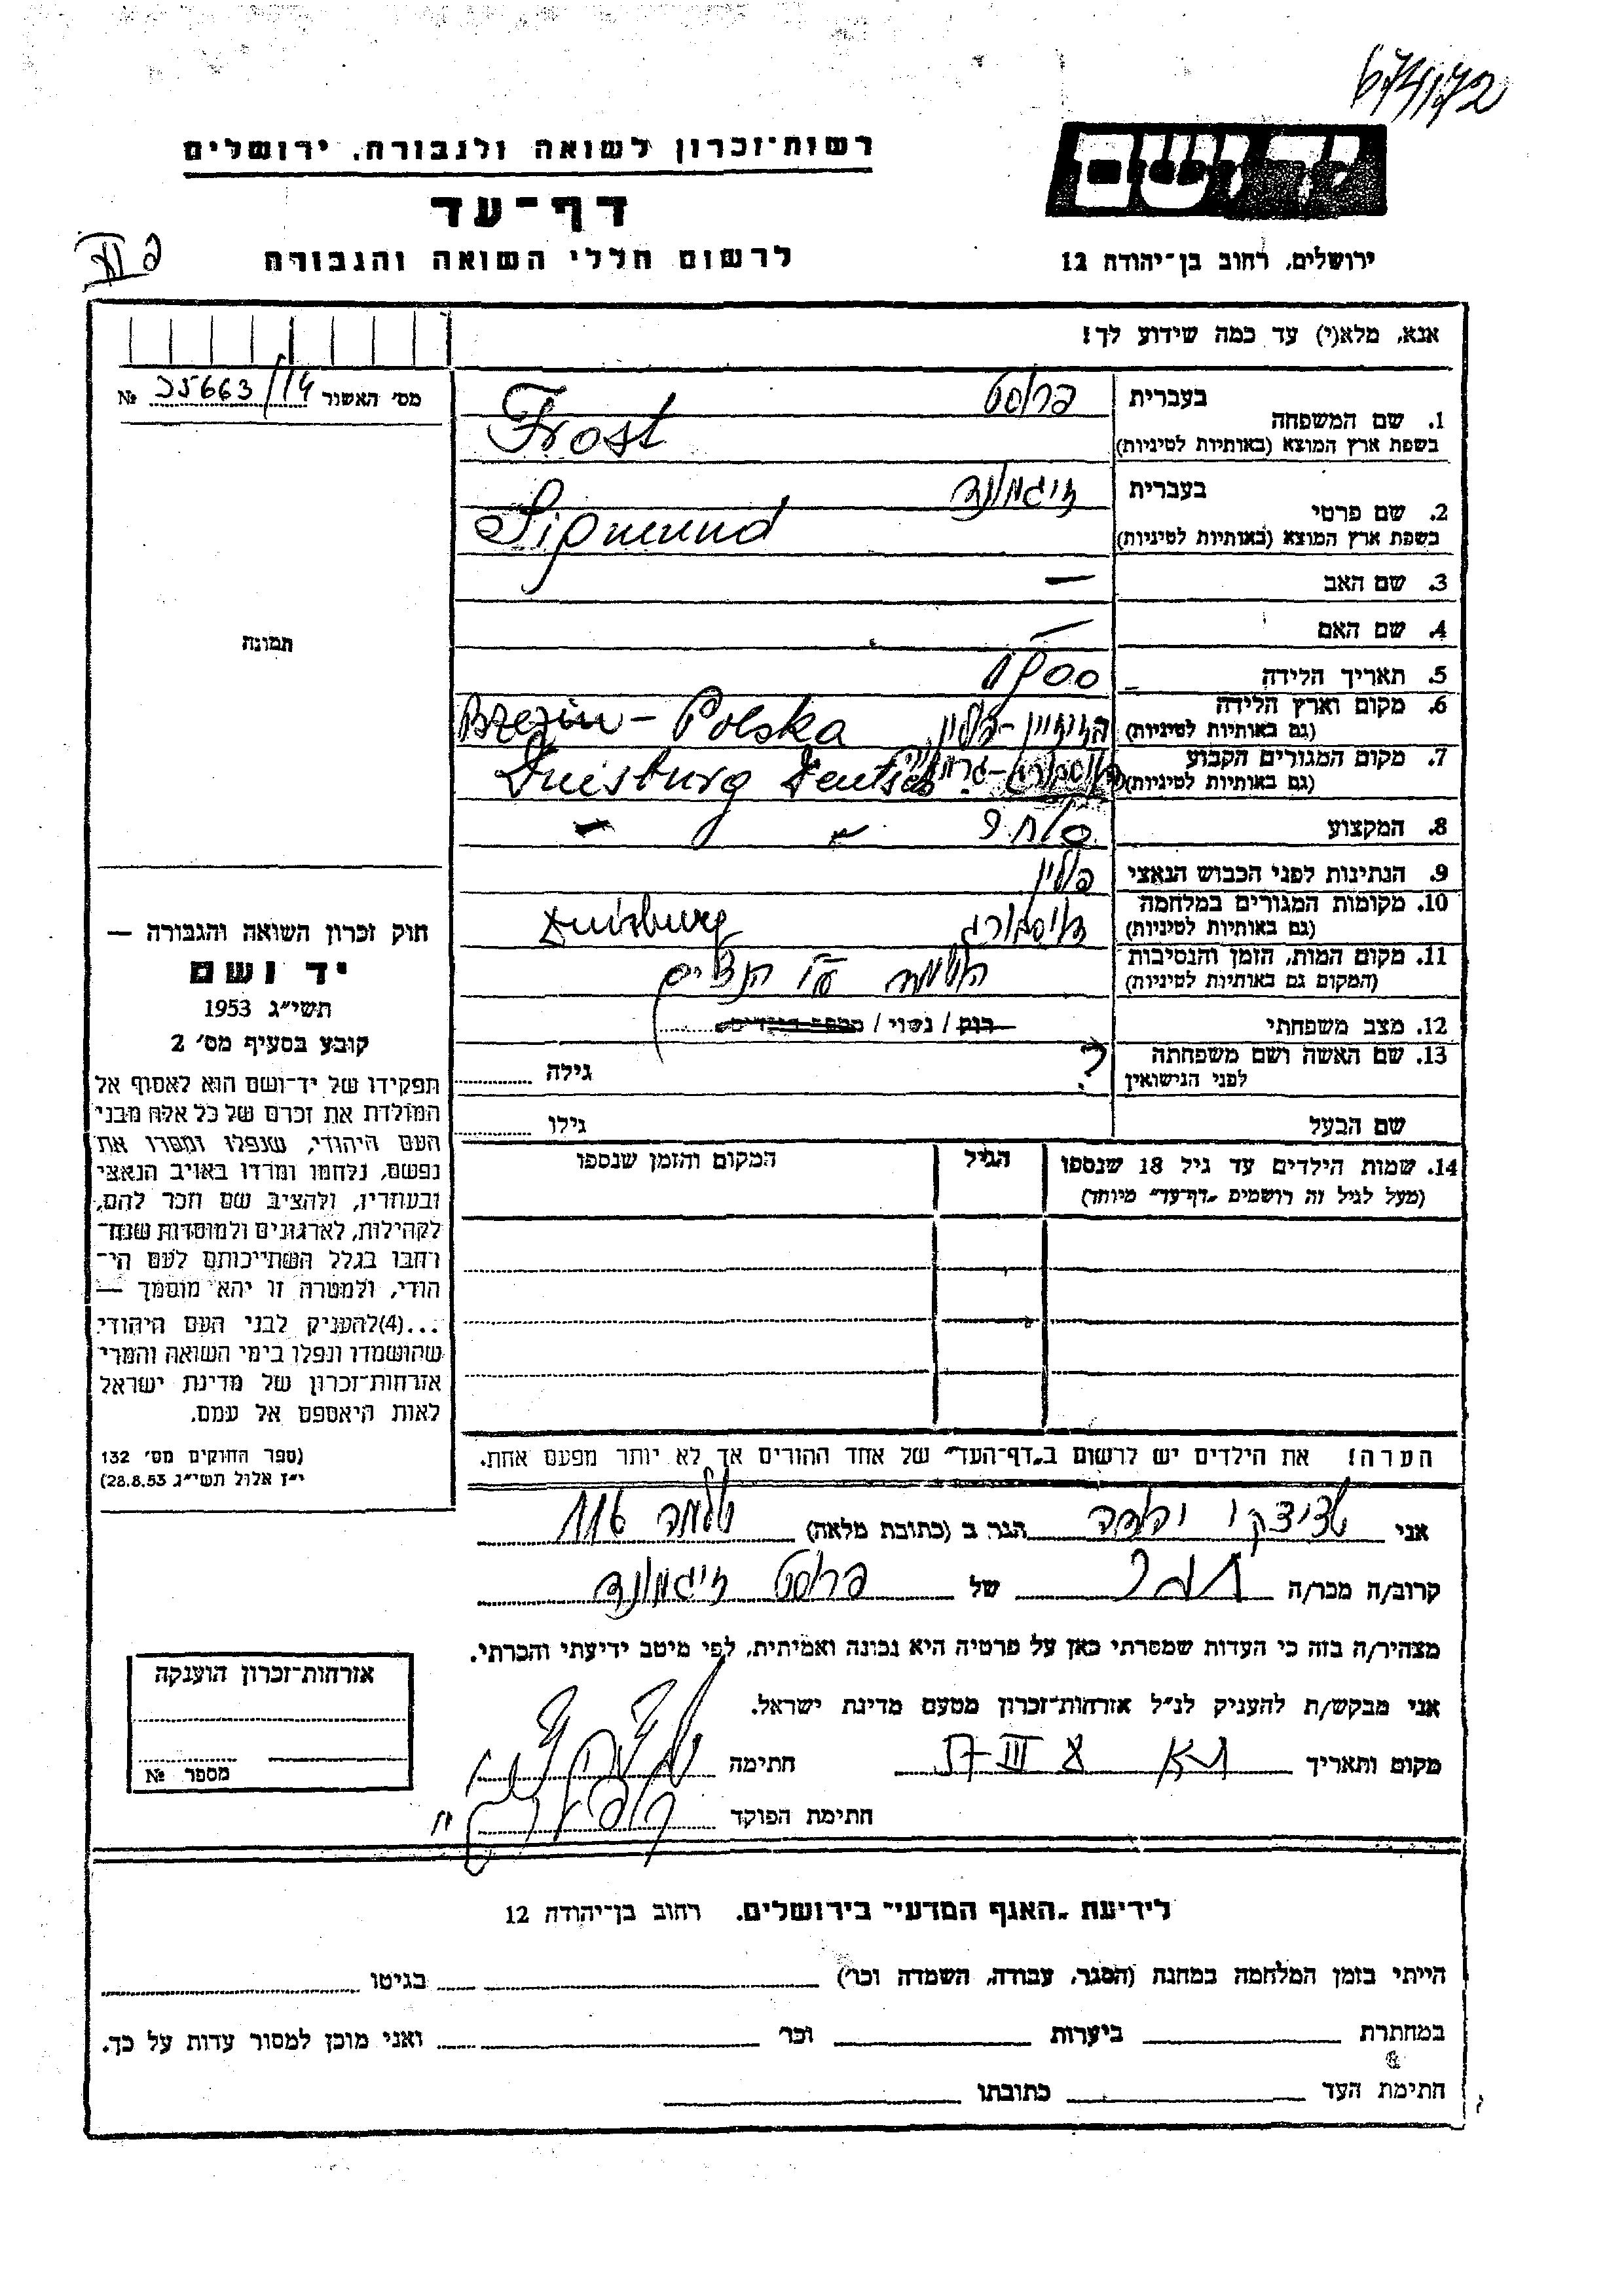 67/172
רשות־זכרון לשואה ולגבורה, ירושלים
יד ושם
דף־עד
לרשום חללי השואה והגבורה
ירושלים, רחוב בן־יהודה 12
אנא, מלא(י) עד כמה שידוע לך!
מס׳ האשור 35663/14 №
תמונה
1. שם המשפחה בעברית פרוסט
בשפת ארץ המוצא (באותיות לטיניות) Frost
2. שם פרטי בעברית זיגמונד
בשפת ארץ המוצא (באותיות לטיניות) Sigmund
3. שם האב —
4. שם האם —
5. תאריך הלידה 1900
6. מקום וארץ הלידה
(גם באותיות לטיניות) פולין Brezin - Polska
7. מקום המגורים הקבוע
(גם באותיות לטיניות) Duisburg Deutsch.
8. המקצוע סוחר
9. הנתינות לפני הכבוש הנאצי פולין
10. מקומות המגורים במלחמה
(גם באותיות לטיניות) דויסבורג Duisburg
11. מקום המות, הזמן והנסיבות
(המקום גם באותיות לטיניות) הושמד ע"י הנצים
12. מצב משפחתי רוק / נשוי / מספר הילדים
13. שם האשה ושם משפחתה
לפני הנישואין ? גילה
שם הבעל גילו
14. שמות הילדים עד גיל 18 שנספו הגיל המקום והזמן שנספו
(מעל לגיל זה רושמים „דף־עד״ מיוחד)
הערה! את הילדים יש לרשום ב„דף־העד״ של אחד ההורים אך לא יותר מפעם אחת.
חוק זכרון השואה והגבורה —
יד ושם
תשי״ג 1953
קובע בסעיף מס׳ 2
תפקידו של יד־ושם הוא לאסוף אל
המולדת את זכרם של כל אלה מבני
העם היהודי, שנפלו ומסרו את
נפשם, נלחמו ומרדו באויב הנאצי
ובעוזריו, ולהציב שם וזכר להם,
לקהילות, לארגונים ולמוסדות שנח־
רחבו בגלל השתייכותם לעם הי־
הודי, ולמטרה זו יהא מוסמך —
...(4)להעניק לבני העם היהודי
שהושמדו ונפלו בימי השואה והמרי
אזרחות־זכרון של מדינת ישראל
לאות היאספם אל עמם.
(ספר החוקים מס׳ 132
י״ז אלול תשי״ג 28.8.53)
אני הגר ב (כתובת מלאה)
קרוב/ה מכר/ה חבר של פרוסט זיגמונד
מצהיר/ה בזה כי העדות שמסרתי כאן על פרטיה היא נכונה ואמיתית, לפי מיטב ידיעתי והכרתי.
אני מבקש/ת להעניק לנ״ל אזרחות־זכרון מטעם מדינת ישראל.
מקום ותאריך חתימה
חתימת הפוקד
אזרחות־זכרון הוענקה
מספר №
לידיעת „האגף המדעי״ בירושלים. רחוב בן־יהודה 12
הייתי בזמן המלחמה במחנה (הסגר, עבודה, השמדה וכו׳) בגיטו
במחתרת ביערות וכו׳ ואני מוכן למסור עדות על כך.
חתימת העד כתובתו